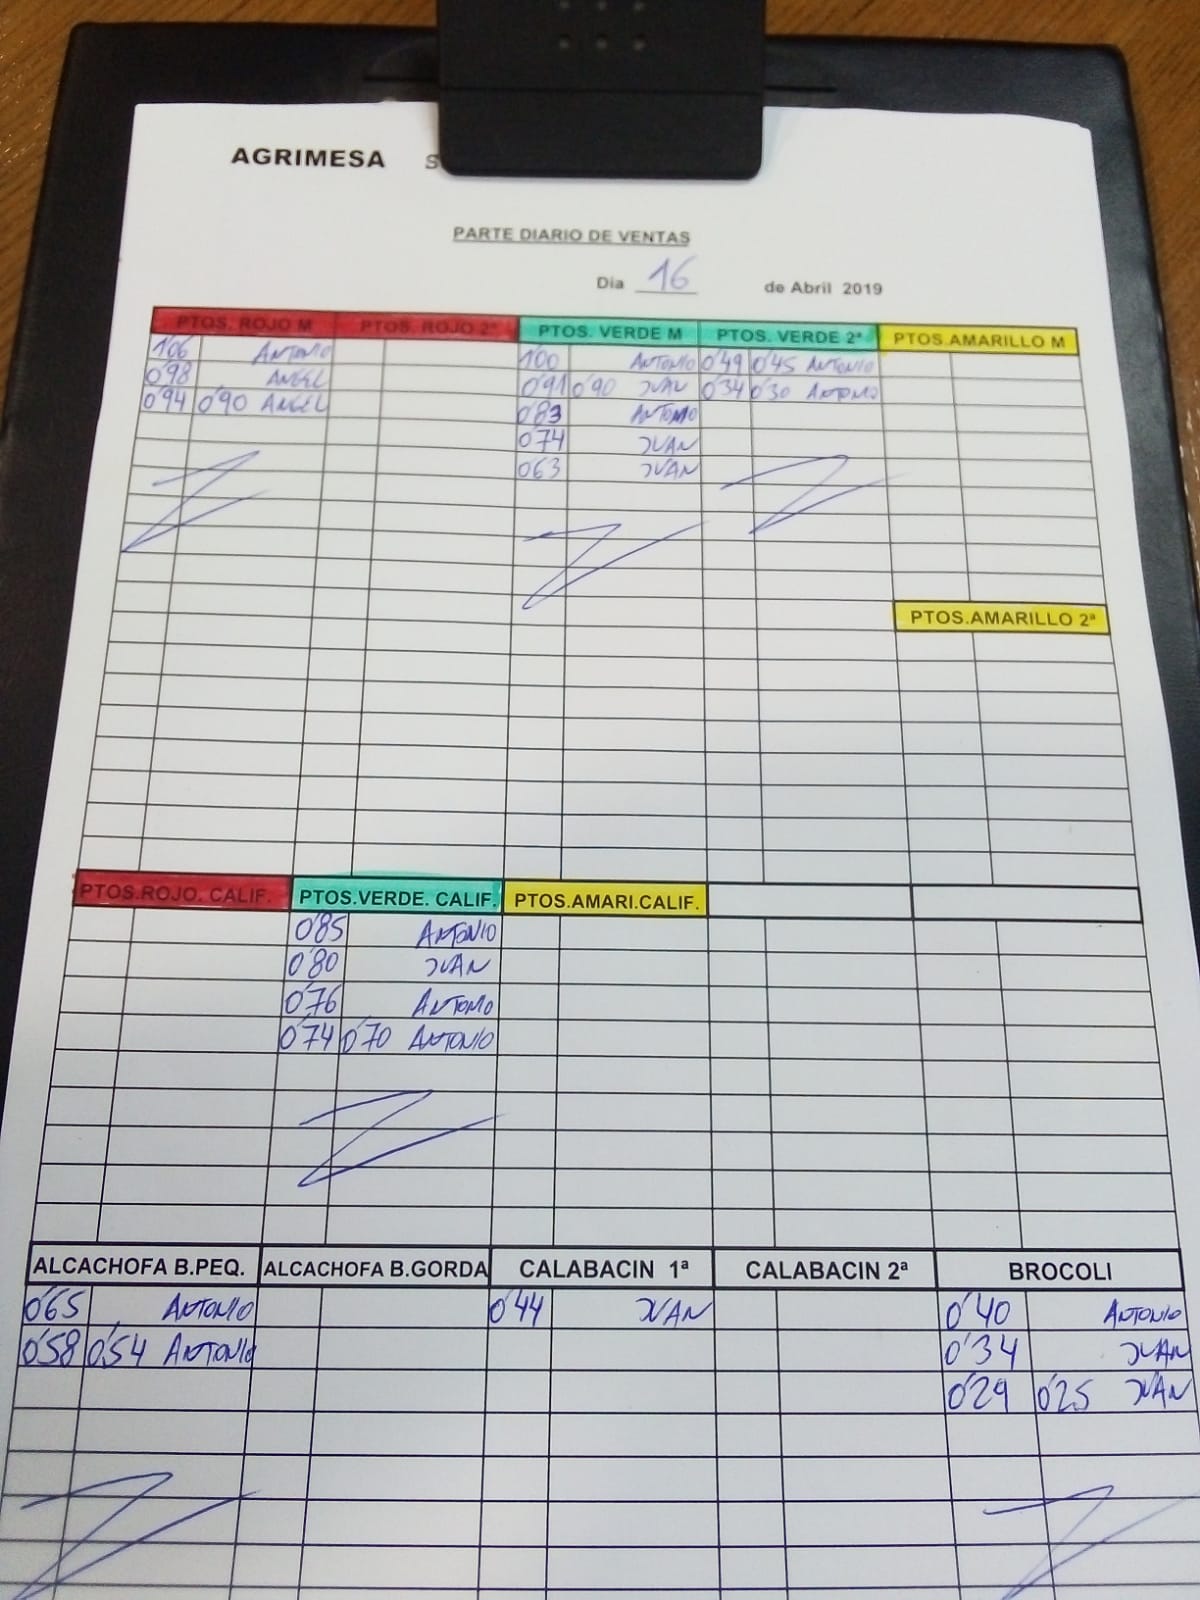 AGRIMESA S
PARTE DIARIO DE VENTAS
Dia 16 de Abril 2019
PTOS. ROJO M PTOS. ROJO 2ª PTOS. VERDE M PTOS. VERDE 2ª PTOS.AMARILLO M
1'06 ANTONIO 1'00 ANTONIO 0'49 0'45 ANTONIO
0'98 ANGEL 0'91 0'90 JUAN 0'34 0'30 ANTONIO
0'94 0'90 ANGEL 0'83 ANTONIO
0'74 JUAN
063 JUAN
PTOS.AMARILLO 2ª
PTOS.ROJO. CALIF. PTOS.VERDE. CALIF. PTOS.AMARI.CALIF.
0'85 ANTONIO
0'80 JUAN
0'76 ANTONIO
0'74 0'70 ANTONIO
ALCACHOFA B.PEQ. ALCACHOFA B.GORDA CALABACIN 1ª CALABACIN 2ª BROCOLI
0'65 ANTONIO 0'44 JUAN 0'40 ANTONIO
0'58 0'54 ANTONIO 0'34 JUAN
0'29 0'25 JUAN